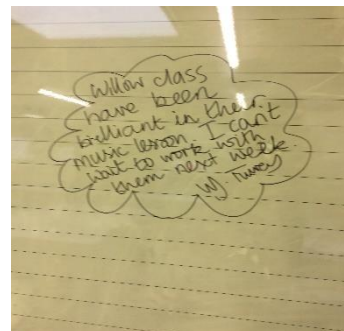 Willow class
have been
brilliant in their
music lesson. I can't
wait to work with
them next week.